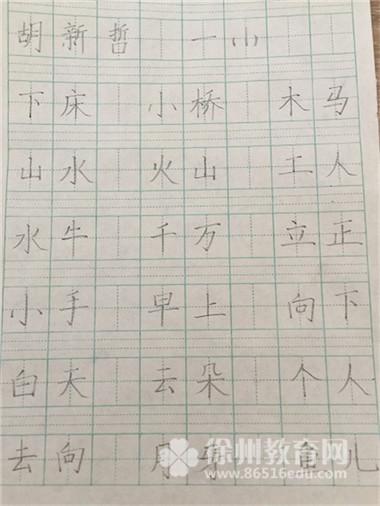 胡新哲 一(1)
下床 小桥 木马
山水 火山 工人
水牛 千万 立正
小手 早上 向下
白天 云朵 个人
去向 月 儿
徐州教育网
www.86516edu.com